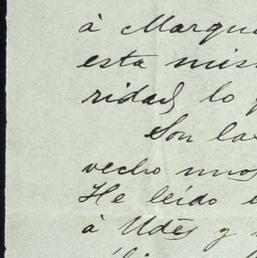 à Marqu
esta mis
ridad, lo
Son las
vecho unos
He leído
à Udès y